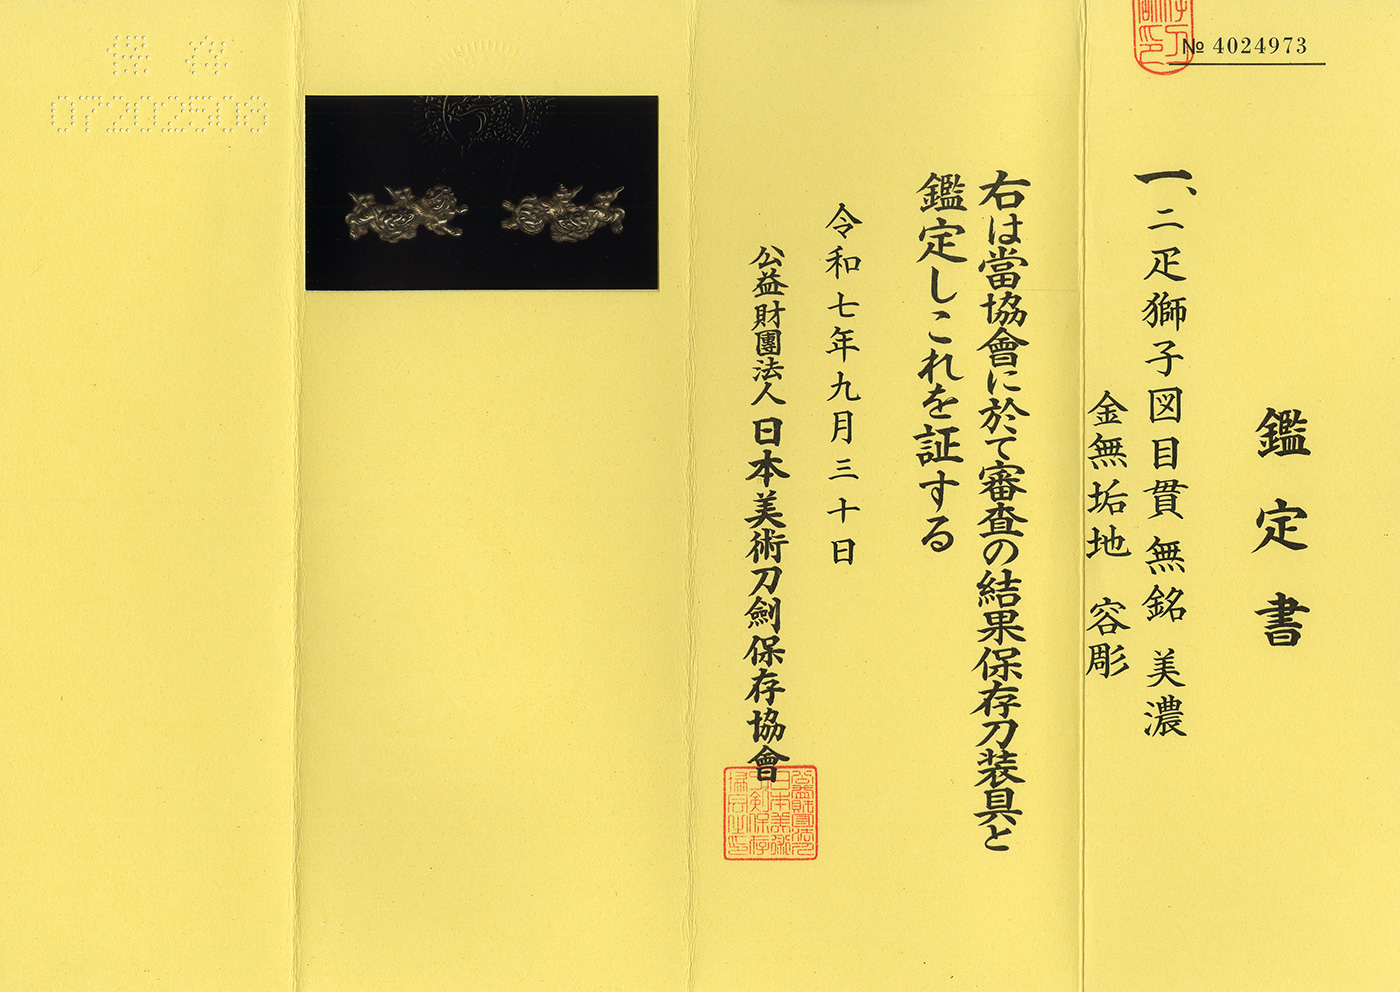 № 4024973
鑑定書
一、二疋獅子図目貫 無銘 美濃
金無垢地 容彫
右は當協會に於て審査の結果保存刀装具と
鑑定しこれを証する
令和七年九月三十日
公益財團法人 日本美術刀劍保存協會
保存
07202508